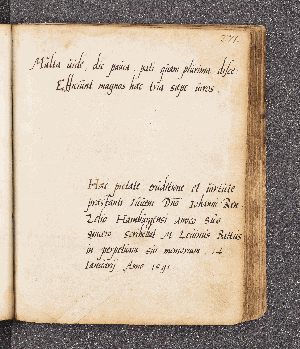 271.
Multa uide, dic pauca, pati quam plurima disce
Efficiunt magnos hæc tria sæpe uiros.
Hæc pietate eruditione et uirtute
præstanti Iuueni Dno Iohanni Ren-
Zelio Hamburgensi amico suo
syncero scribebat M Leuinus Battus
in perpetuam sui memoriam 14
Ianuarij Anno 1591